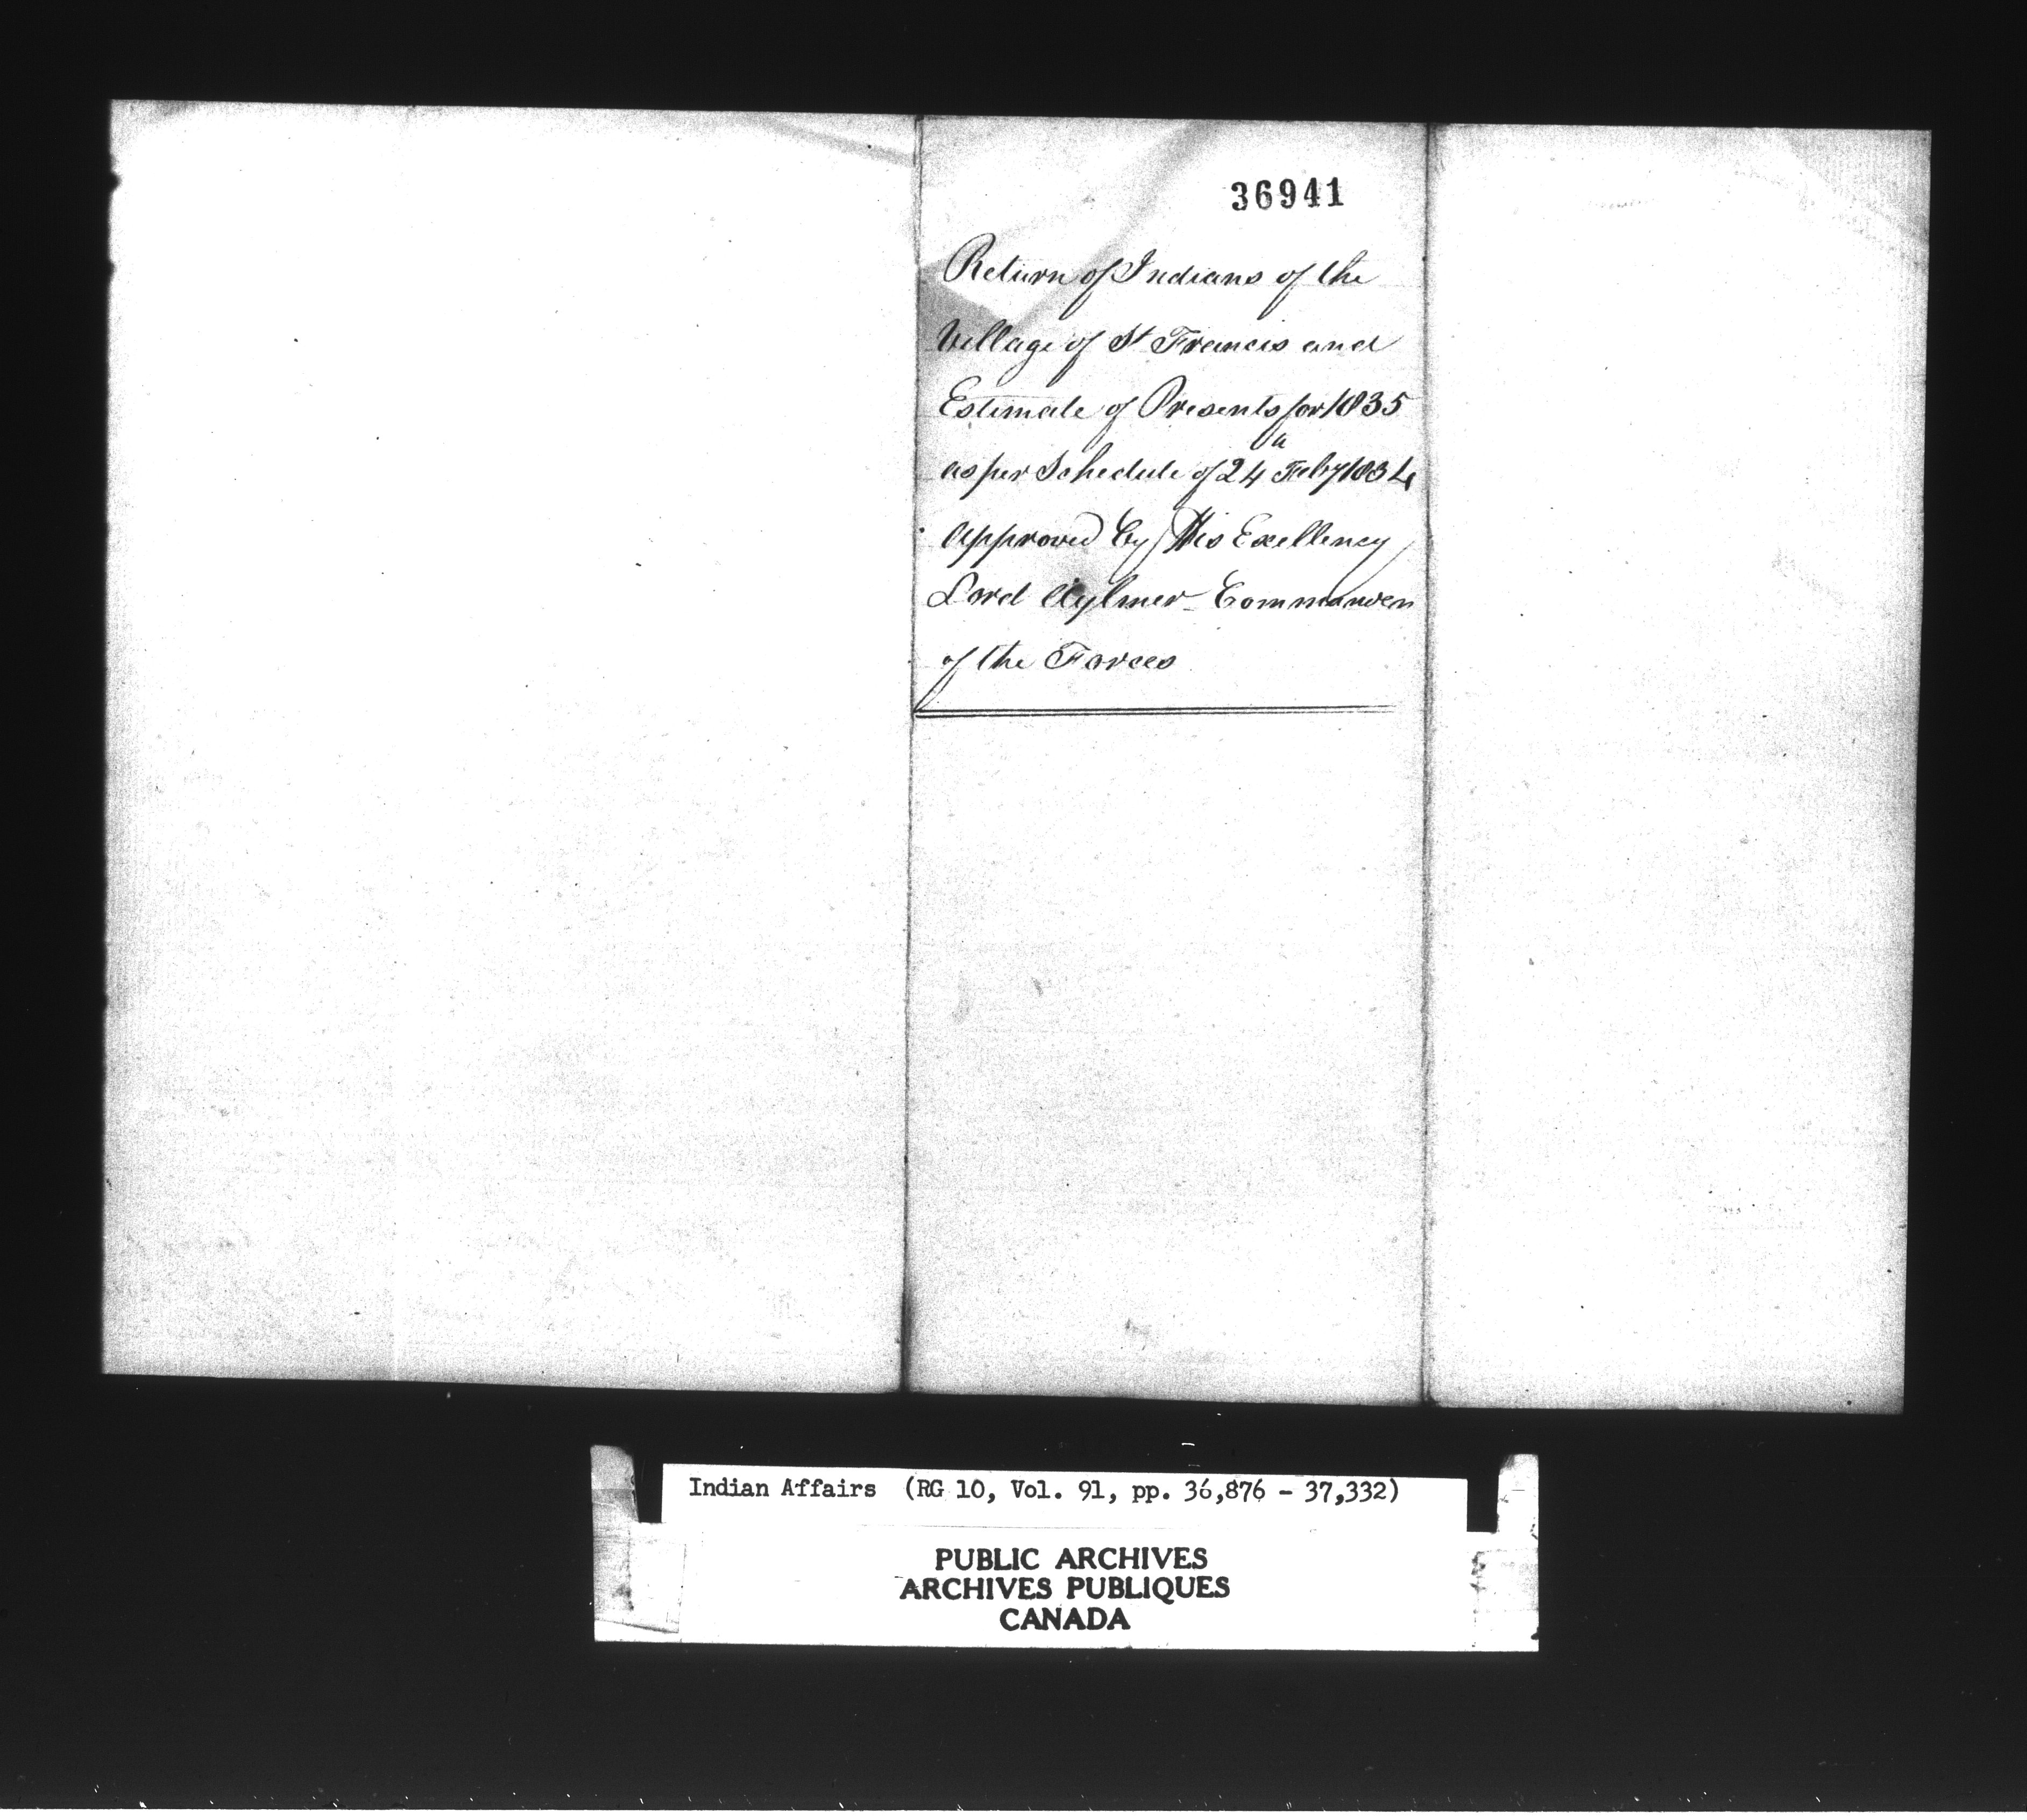 36941
Return of Indians of the
Village of St Francis and
Estimate of Presents for 1835
as per Schedule of 24 Feby 1834
approved by His Exellency
Lord Aylmer Commander
of the Forces
Indian Affairs (RG 10, Vol. 91, pp. 36,876 - 37,332)
PUBLIC ARCHIVES
ARCHIVES PUBLIQUES
CANADA